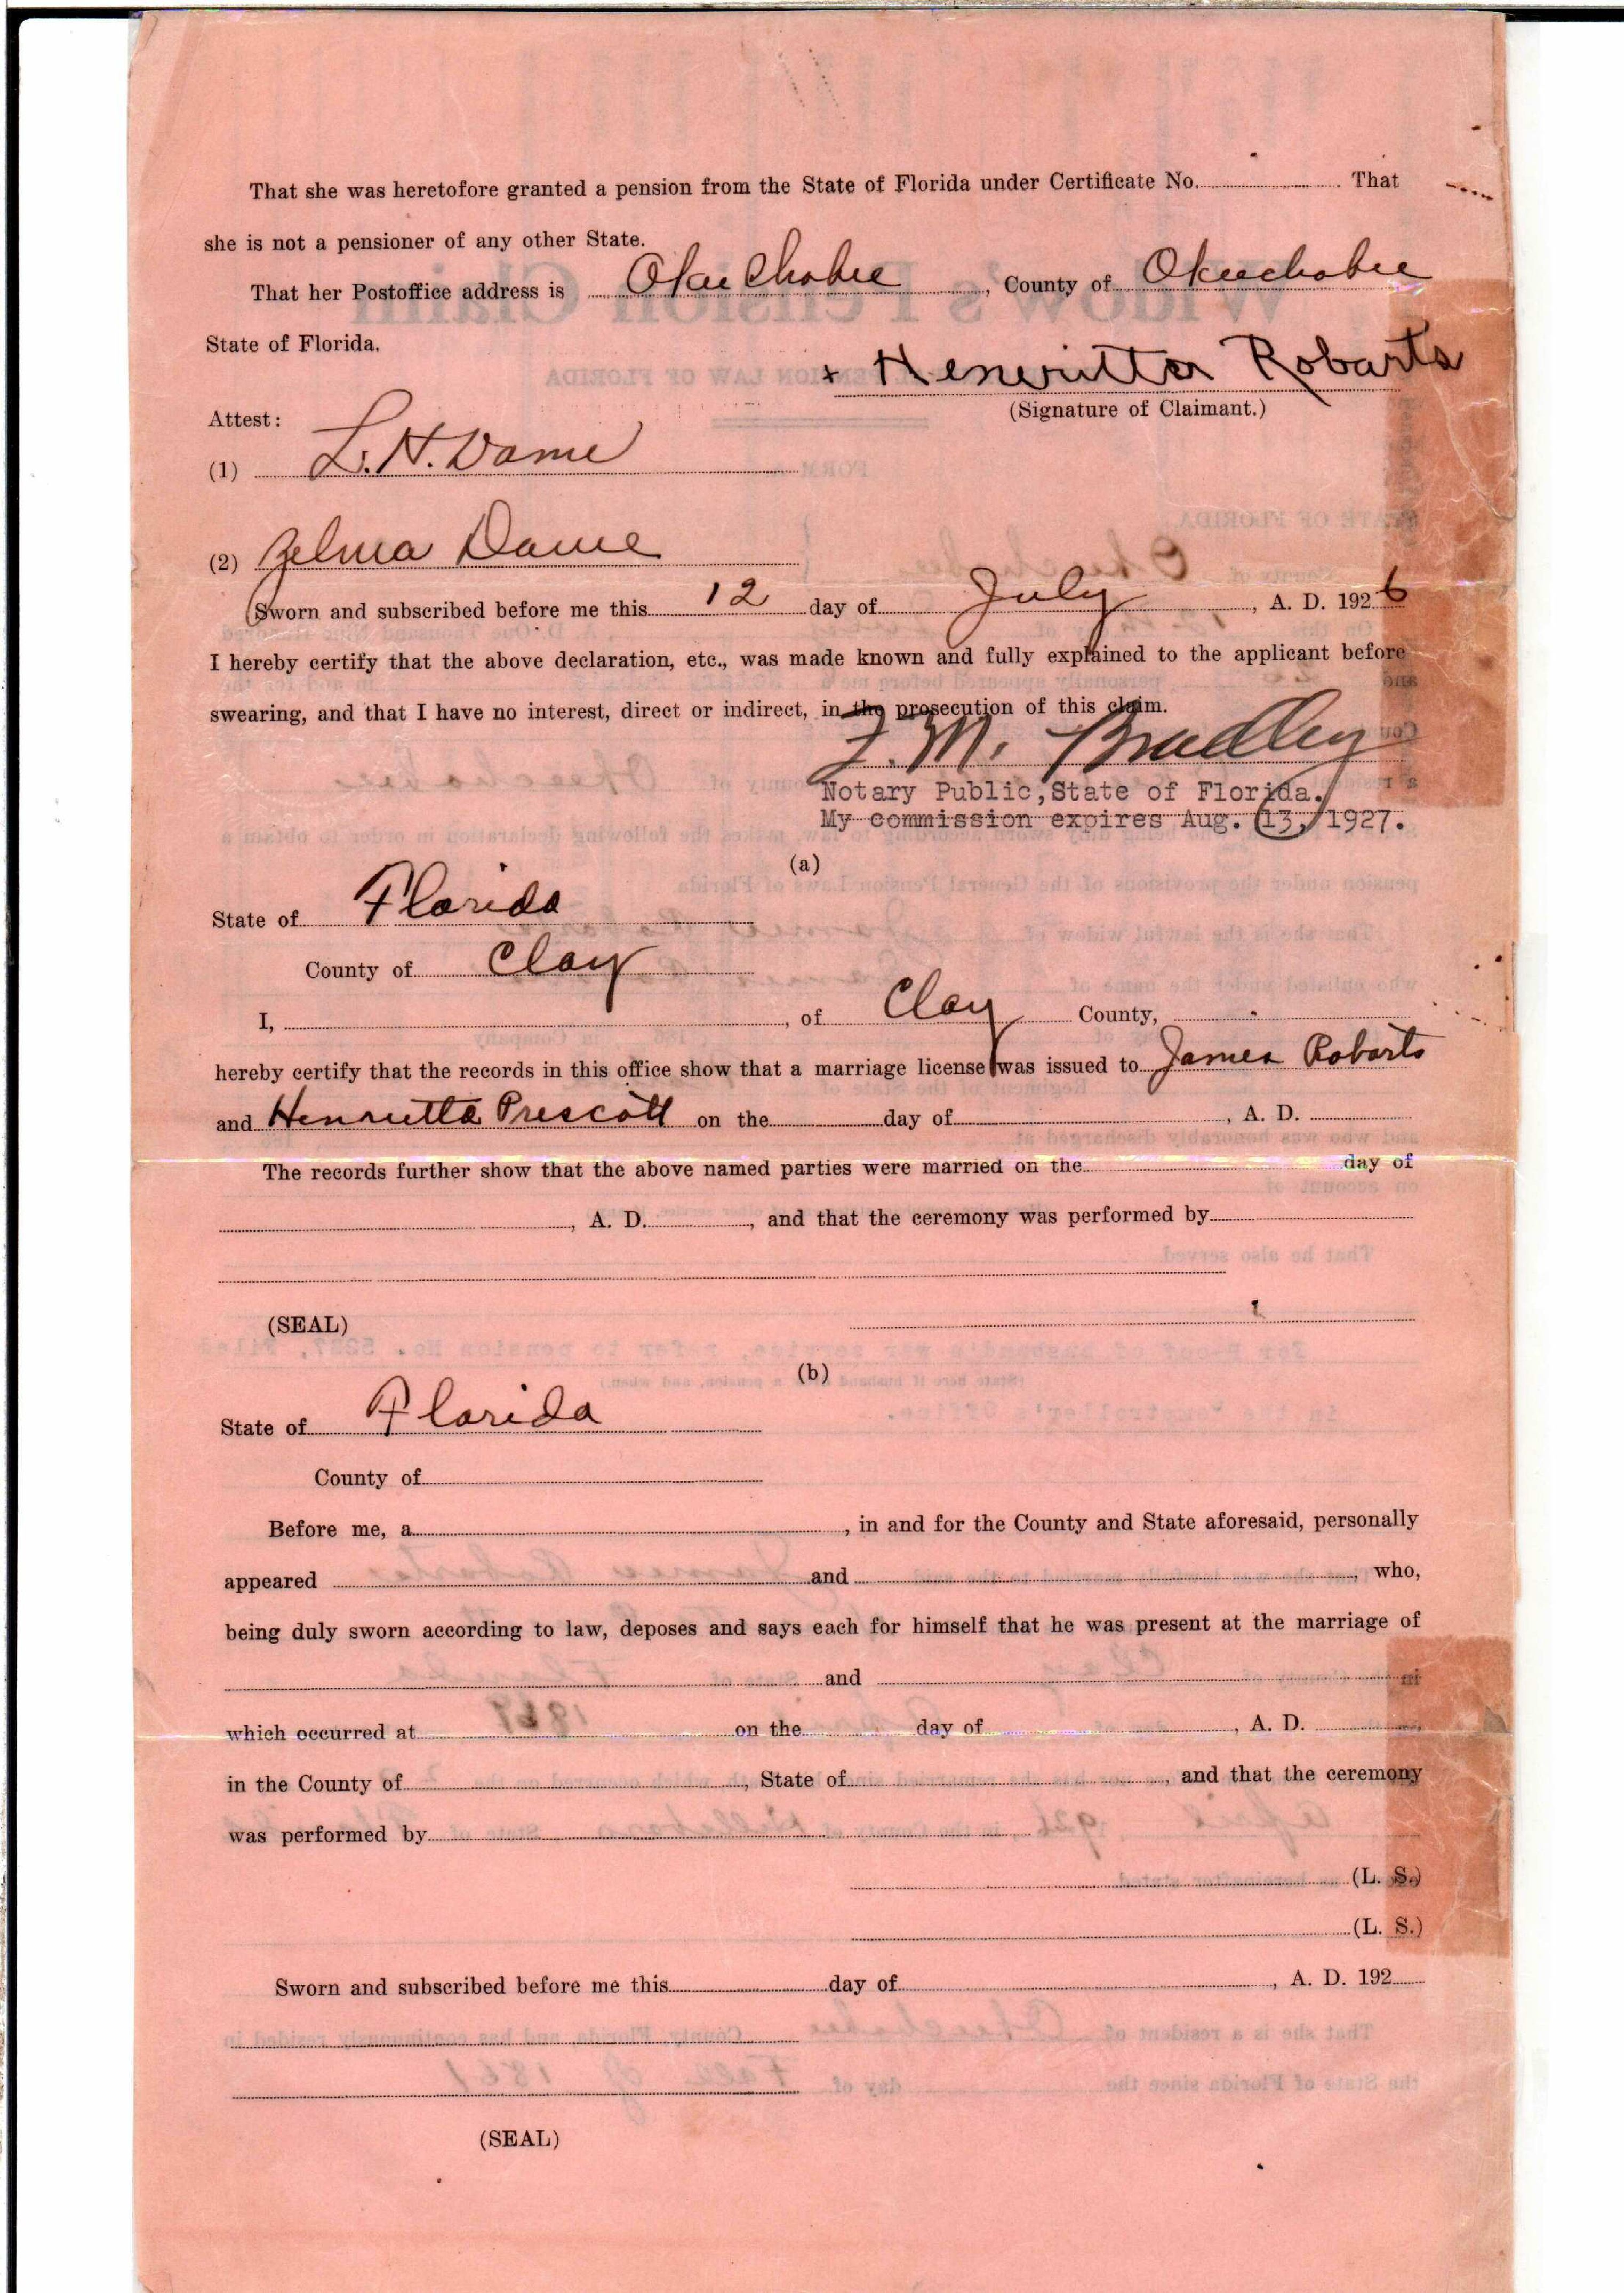 That she was heretofore granted a pension from the State of Florida under Certificate No. . That
she is not a pensioner of any other State.
That her Postoffice address is Okeechobee, County of Okeechobee
State of Florida.
+ Henerutta Robarts
(Signature of Claimant.)
Attest:
(1) L. H. Dame
(2) Zelma Dame
Sworn and subscribed before me this 12 day of July, A. D. 1926
I hereby certify that the above declaration, etc., was made known and fully explained to the applicant before
swearing, and that I have no interest, direct or indirect, in the prosecution of this claim.
F. M. Bradley
Notary Public, State of Florida.
My commission expires Aug. 13, 1927.
(a)
State of Florida
County of Clay
I, , of Clay County,
hereby certify that the records in this office show that a marriage license was issued to James Robarts
and Henrietta Prescott on the day of , A. D.
The records further show that the above named parties were married on the day of
, A. D. , and that the ceremony was performed by
(SEAL)
(b)
State of Florida
County of
Before me, a , in and for the County and State aforesaid, personally
appeared and , who,
being duly sworn according to law, deposes and says each for himself that he was present at the marriage of
and
which occurred at on the day of , A. D.
in the County of , State of , and that the ceremony
was performed by
(L. S.)
(L. S.)
Sworn and subscribed before me this day of , A. D. 192
(SEAL)